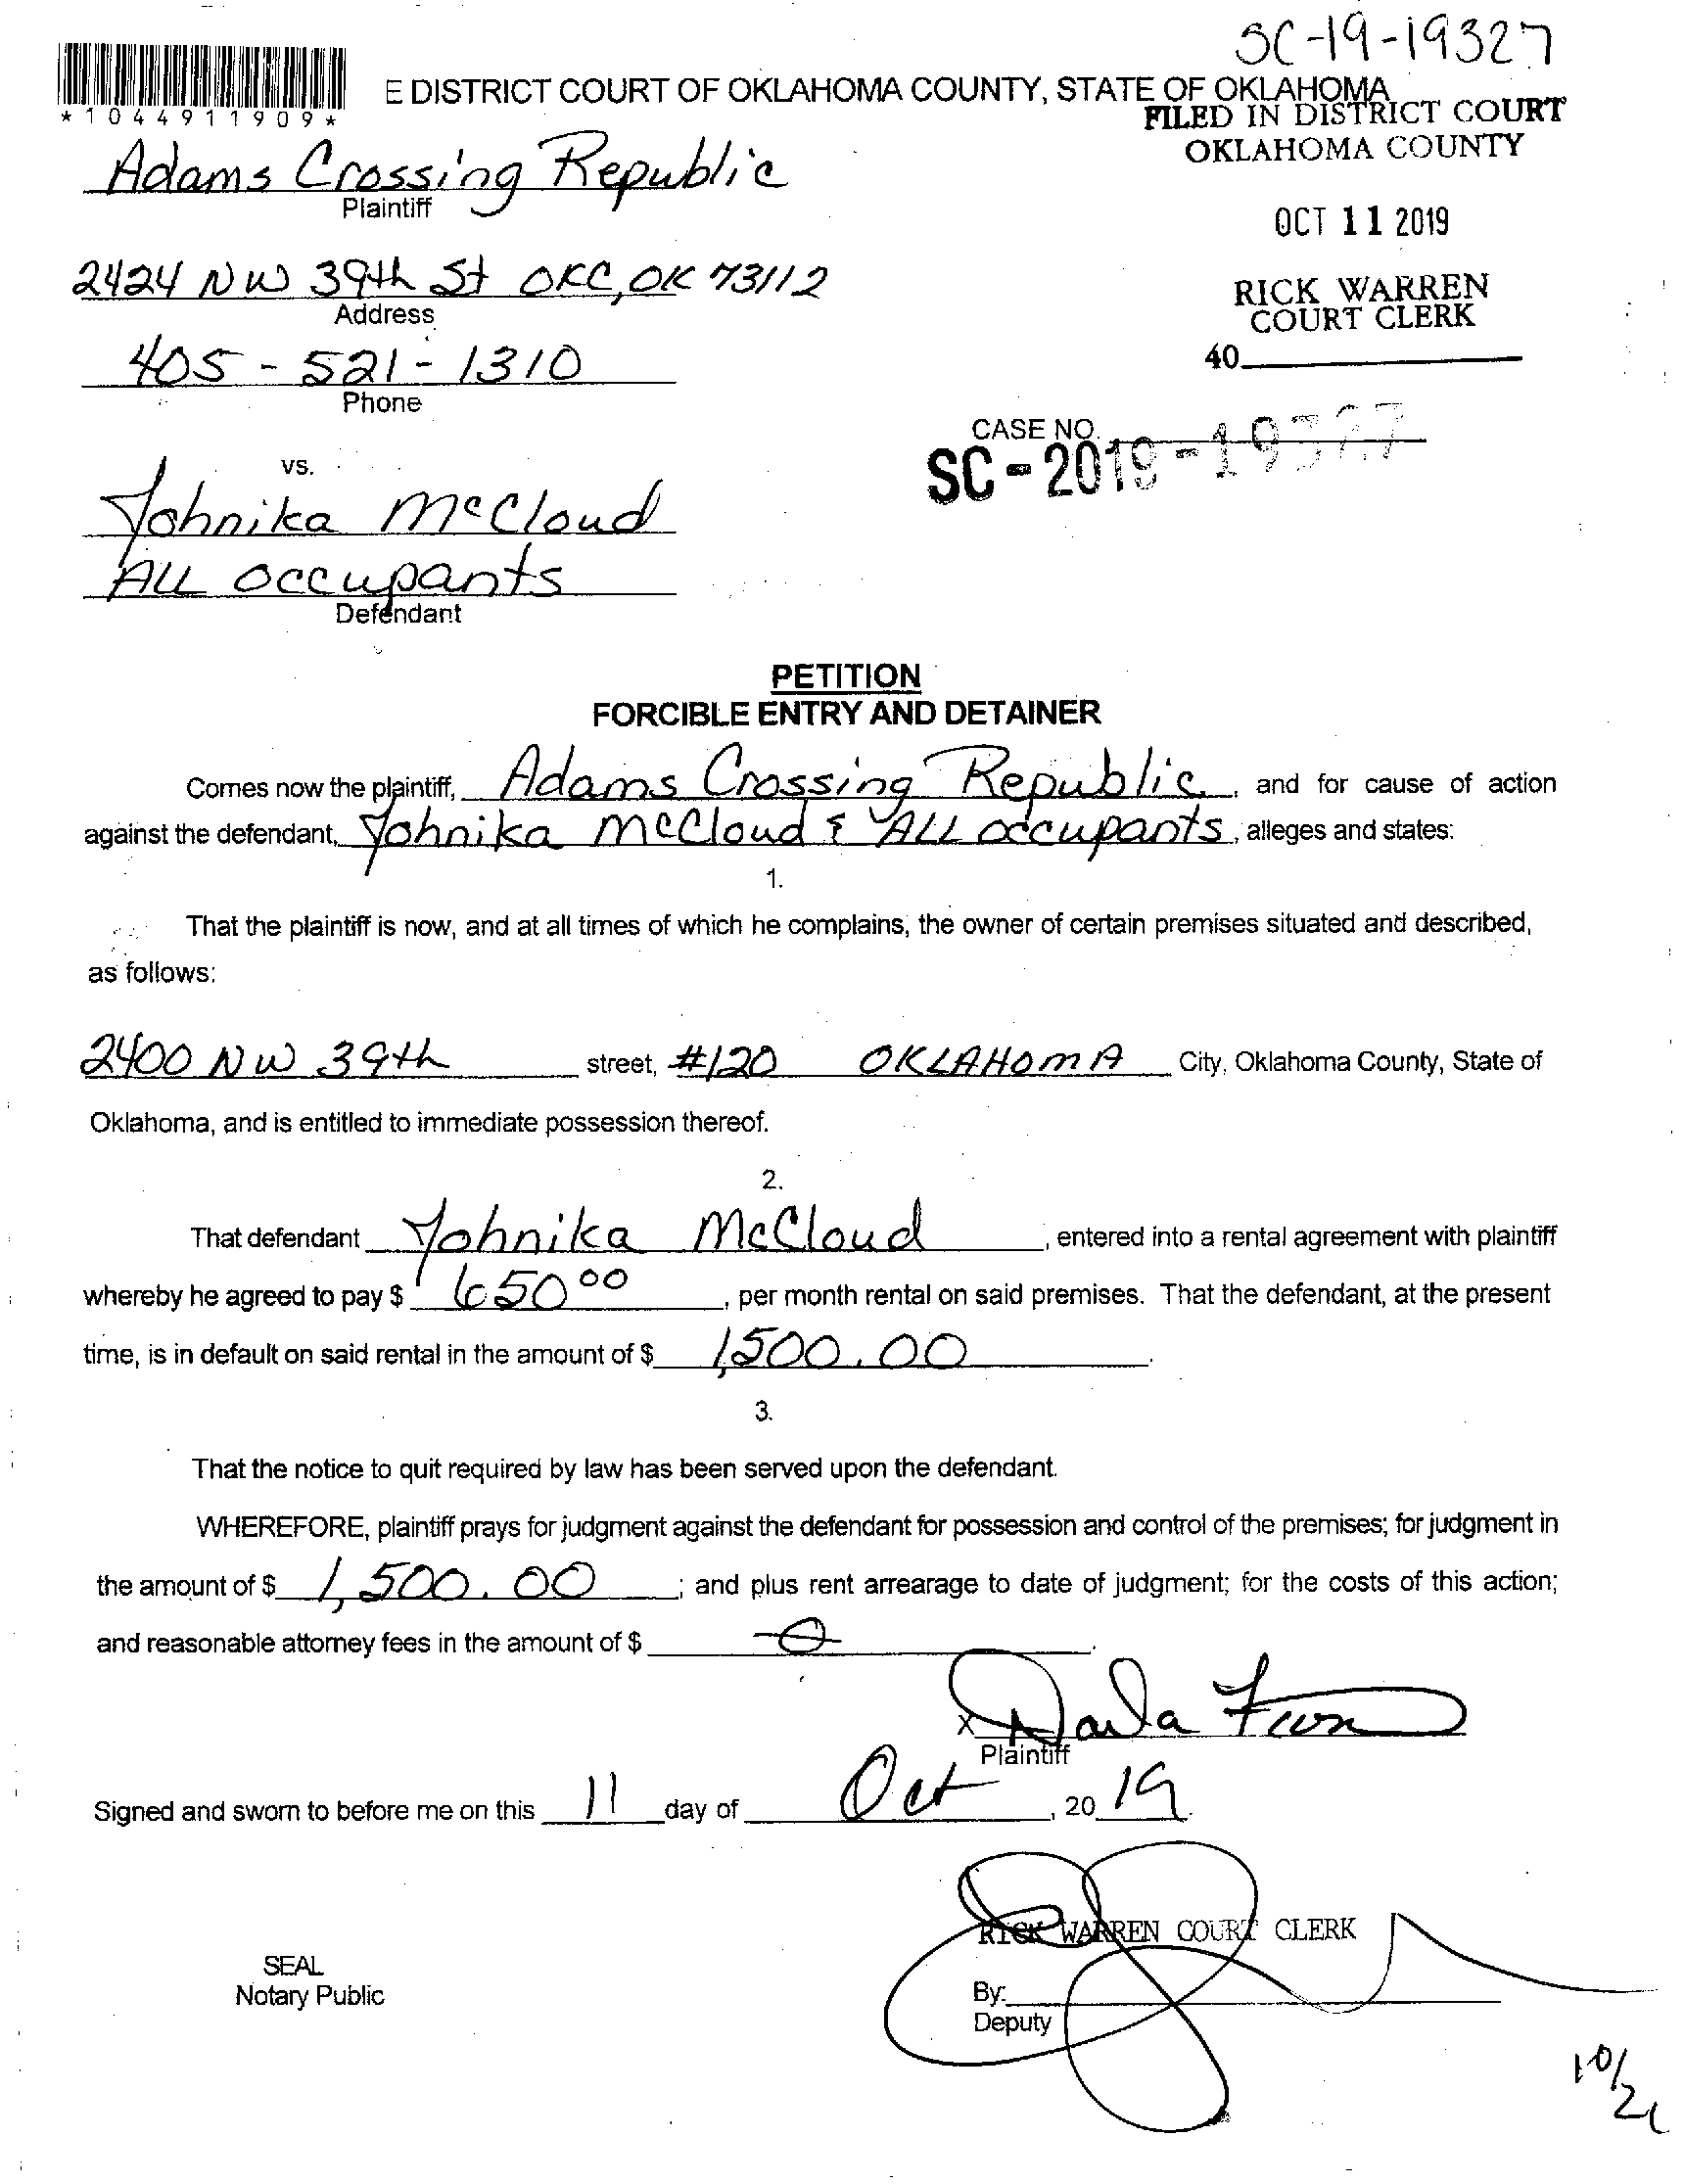 SC-19-19327
E DISTRICT COURT OF OKLAHOMA COUNTY, STATE OF OKLAHOMA
*1044911909*
FILED IN DISTRICT COURT
OKLAHOMA COUNTY
Adams Crossing Republic
Plaintiff
OCT 11 2019
2424 NW 39th St OKC, OK 73112
Address
RICK WARREN
COURT CLERK
405-521-1310
Phone
40
CASE NO.
SC-2019-19327
vs.
Yohnika McCloud
ALL occupants
Defendant
PETITION
FORCIBLE ENTRY AND DETAINER
Comes now the plaintiff, Adams Crossing Republic, and for cause of action
against the defendant, Yohnika McCloud & ALL occupants, alleges and states:
1.
That the plaintiff is now, and at all times of which he complains, the owner of certain premises situated and described,
as follows:
2400 NW 39th street, #120 OKLAHOMA City, Oklahoma County, State of
Oklahoma, and is entitled to immediate possession thereof.
2.
That defendant Yohnika McCloud, entered into a rental agreement with plaintiff
whereby he agreed to pay $ 650 00, per month rental on said premises. That the defendant, at the present
time, is in default on said rental in the amount of $ 1,500.00.
3.
That the notice to quit required by law has been served upon the defendant.
WHEREFORE, plaintiff prays for judgment against the defendant for possession and control of the premises; for judgment in
the amount of $ 1,500.00; and plus rent arrearage to date of judgment; for the costs of this action;
and reasonable attorney fees in the amount of $ 0.
X Darla
Plaintiff
Signed and sworn to before me on this 11 day of Oct, 2019.
RICK WARREN COURT CLERK
SEAL
Notary Public
By:
Deputy